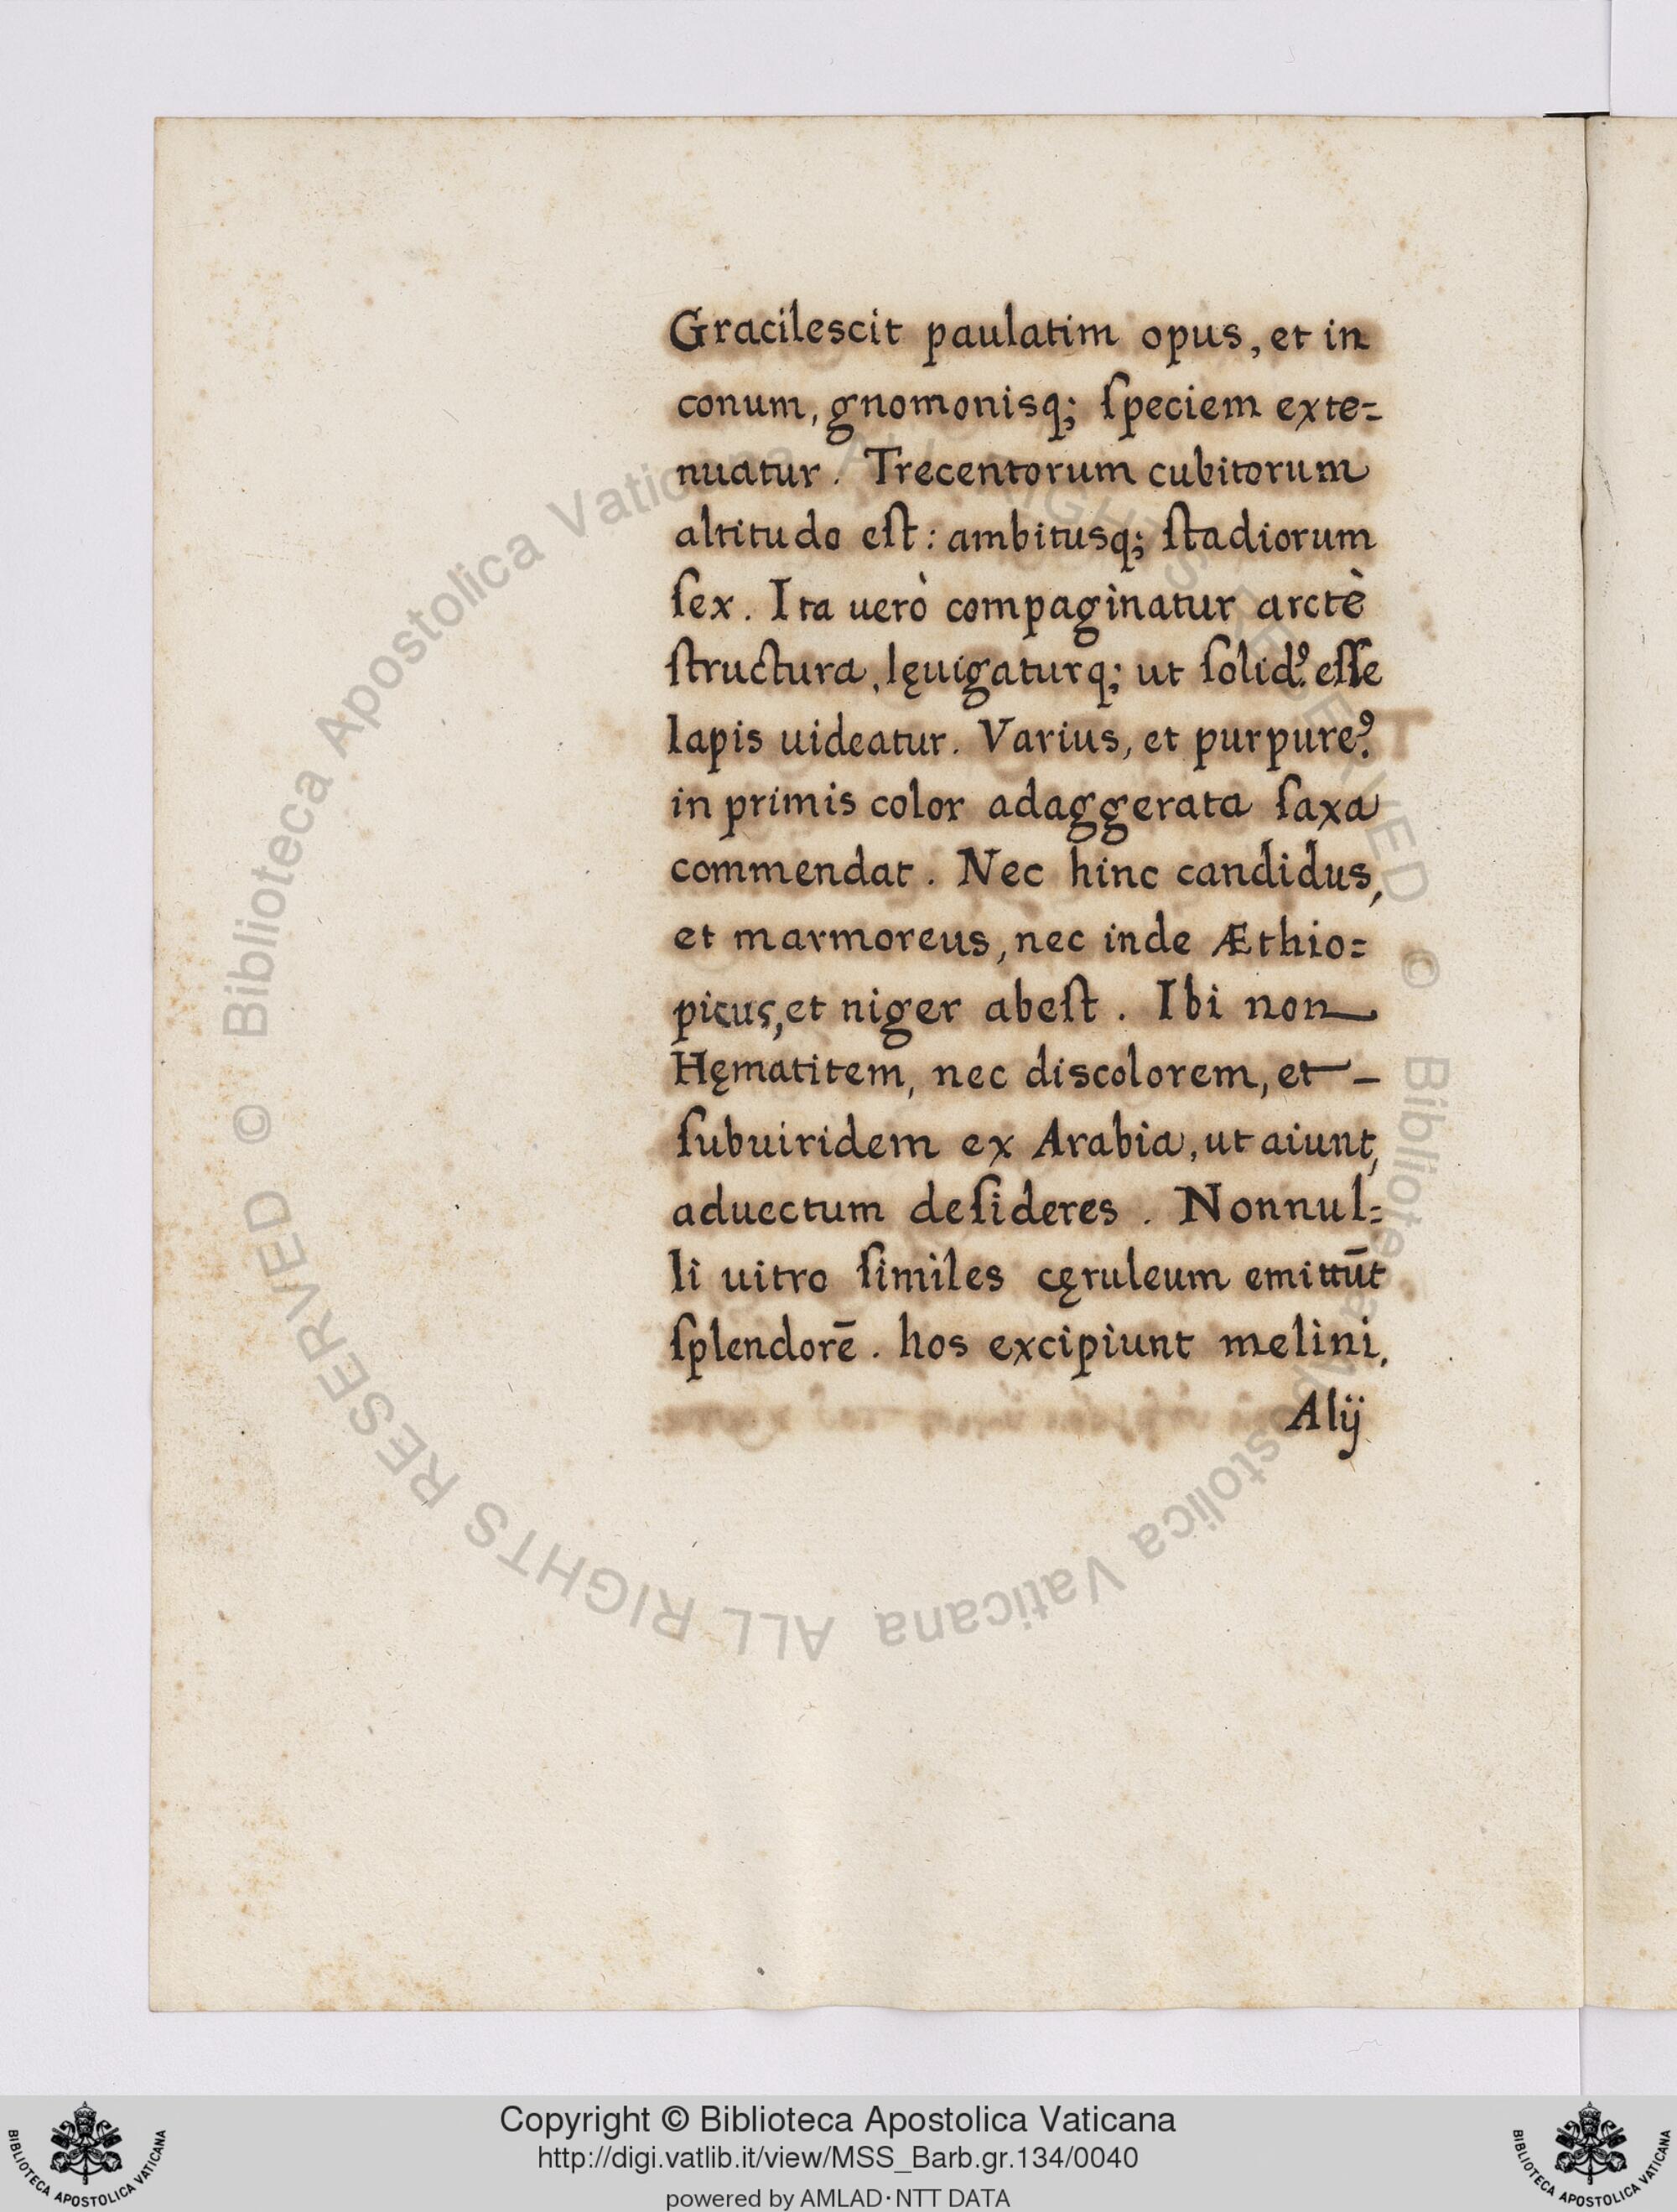 Gracilescit paulatim opus, et in
conum, gnomonisq; ſpeciem exte=
nuatur. Trecentorum cubitorum
altitudo eſt: ambitusq; ſtadiorum
ſex. Ita uerò compaginatur arctè
ſtructura, lęuigaturq; ut ſolidꝰ. eſſe
lapis uideatur. Varius, et purpureꝰ.
in primis color adaggerata ſaxa
commendat. Nec hinc candidus,
et marmoreus, nec inde Æthio=
picus, et niger abeſt. Ibi non
Hęmatitem, nec discolorem, et -
ſubuiridem ex Arabia, ut aiunt,
aduectum deſideres. Nonnul=
li uitro ſimiles cęruleum emittūt
ſplendorē. hos excipiunt melini.
Alÿ
© Biblioteca Apostolica Vaticana ALL RIGHTS RESERVED
© Biblioteca Apostolica Vaticana ALL RIGHTS RESERVED
BIBLIOTECA APOSTOLICA VATICANA
Copyright © Biblioteca Apostolica Vaticana
http://digi.vatlib.it/view/MSS_Barb.gr.134/0040
powered by AMLAD·NTT DATA
BIBLIOTECA APOSTOLICA VATICANA